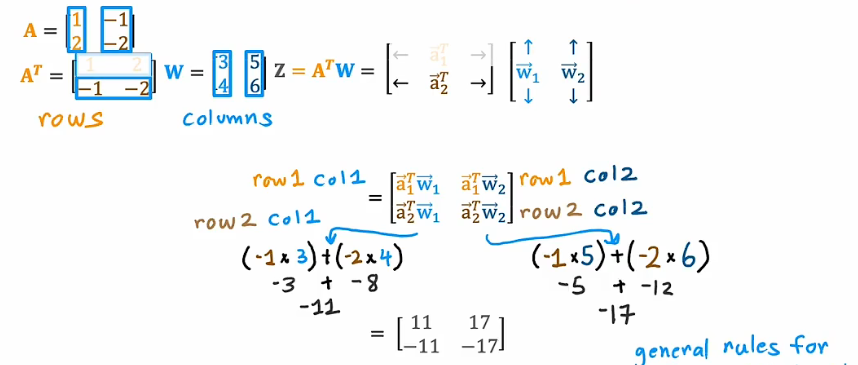 A = [1 -1
2 -2]
Aᵀ = [1 2
-1 -2] W = [3 5
4 6] Z = AᵀW = [← a⃗₁ᵀ →
← a⃗₂ᵀ →] [↑ ↑
w⃗₁ w⃗₂
↓ ↓]
rows columns
row1 col1 = [a⃗₁ᵀw⃗₁ a⃗₁ᵀw⃗₂] row1 col2
row2 col1 [a⃗₂ᵀw⃗₁ a⃗₂ᵀw⃗₂] row2 col2
(-1 × 3) + (-2 × 4) (-1 × 5) + (-2 × 6)
-3 + -8 -5 + -12
-11 -17
= [11 17
-11 -17]
general rules for